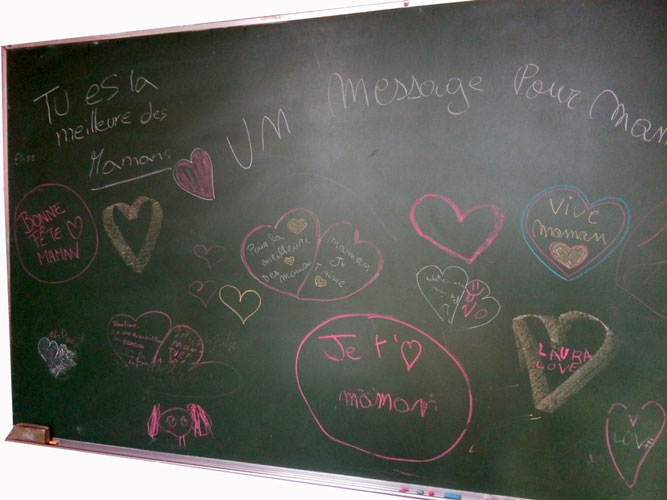 Tu es la
meilleure des
Mamans
UN message pour Mam
BONNE
FÊTE
MAMAN
Pour la
meilleur
Des maman
Maman
Je
t'aime
Vive
maman
Je t'
maman
LAURA
LOVE
LOVE